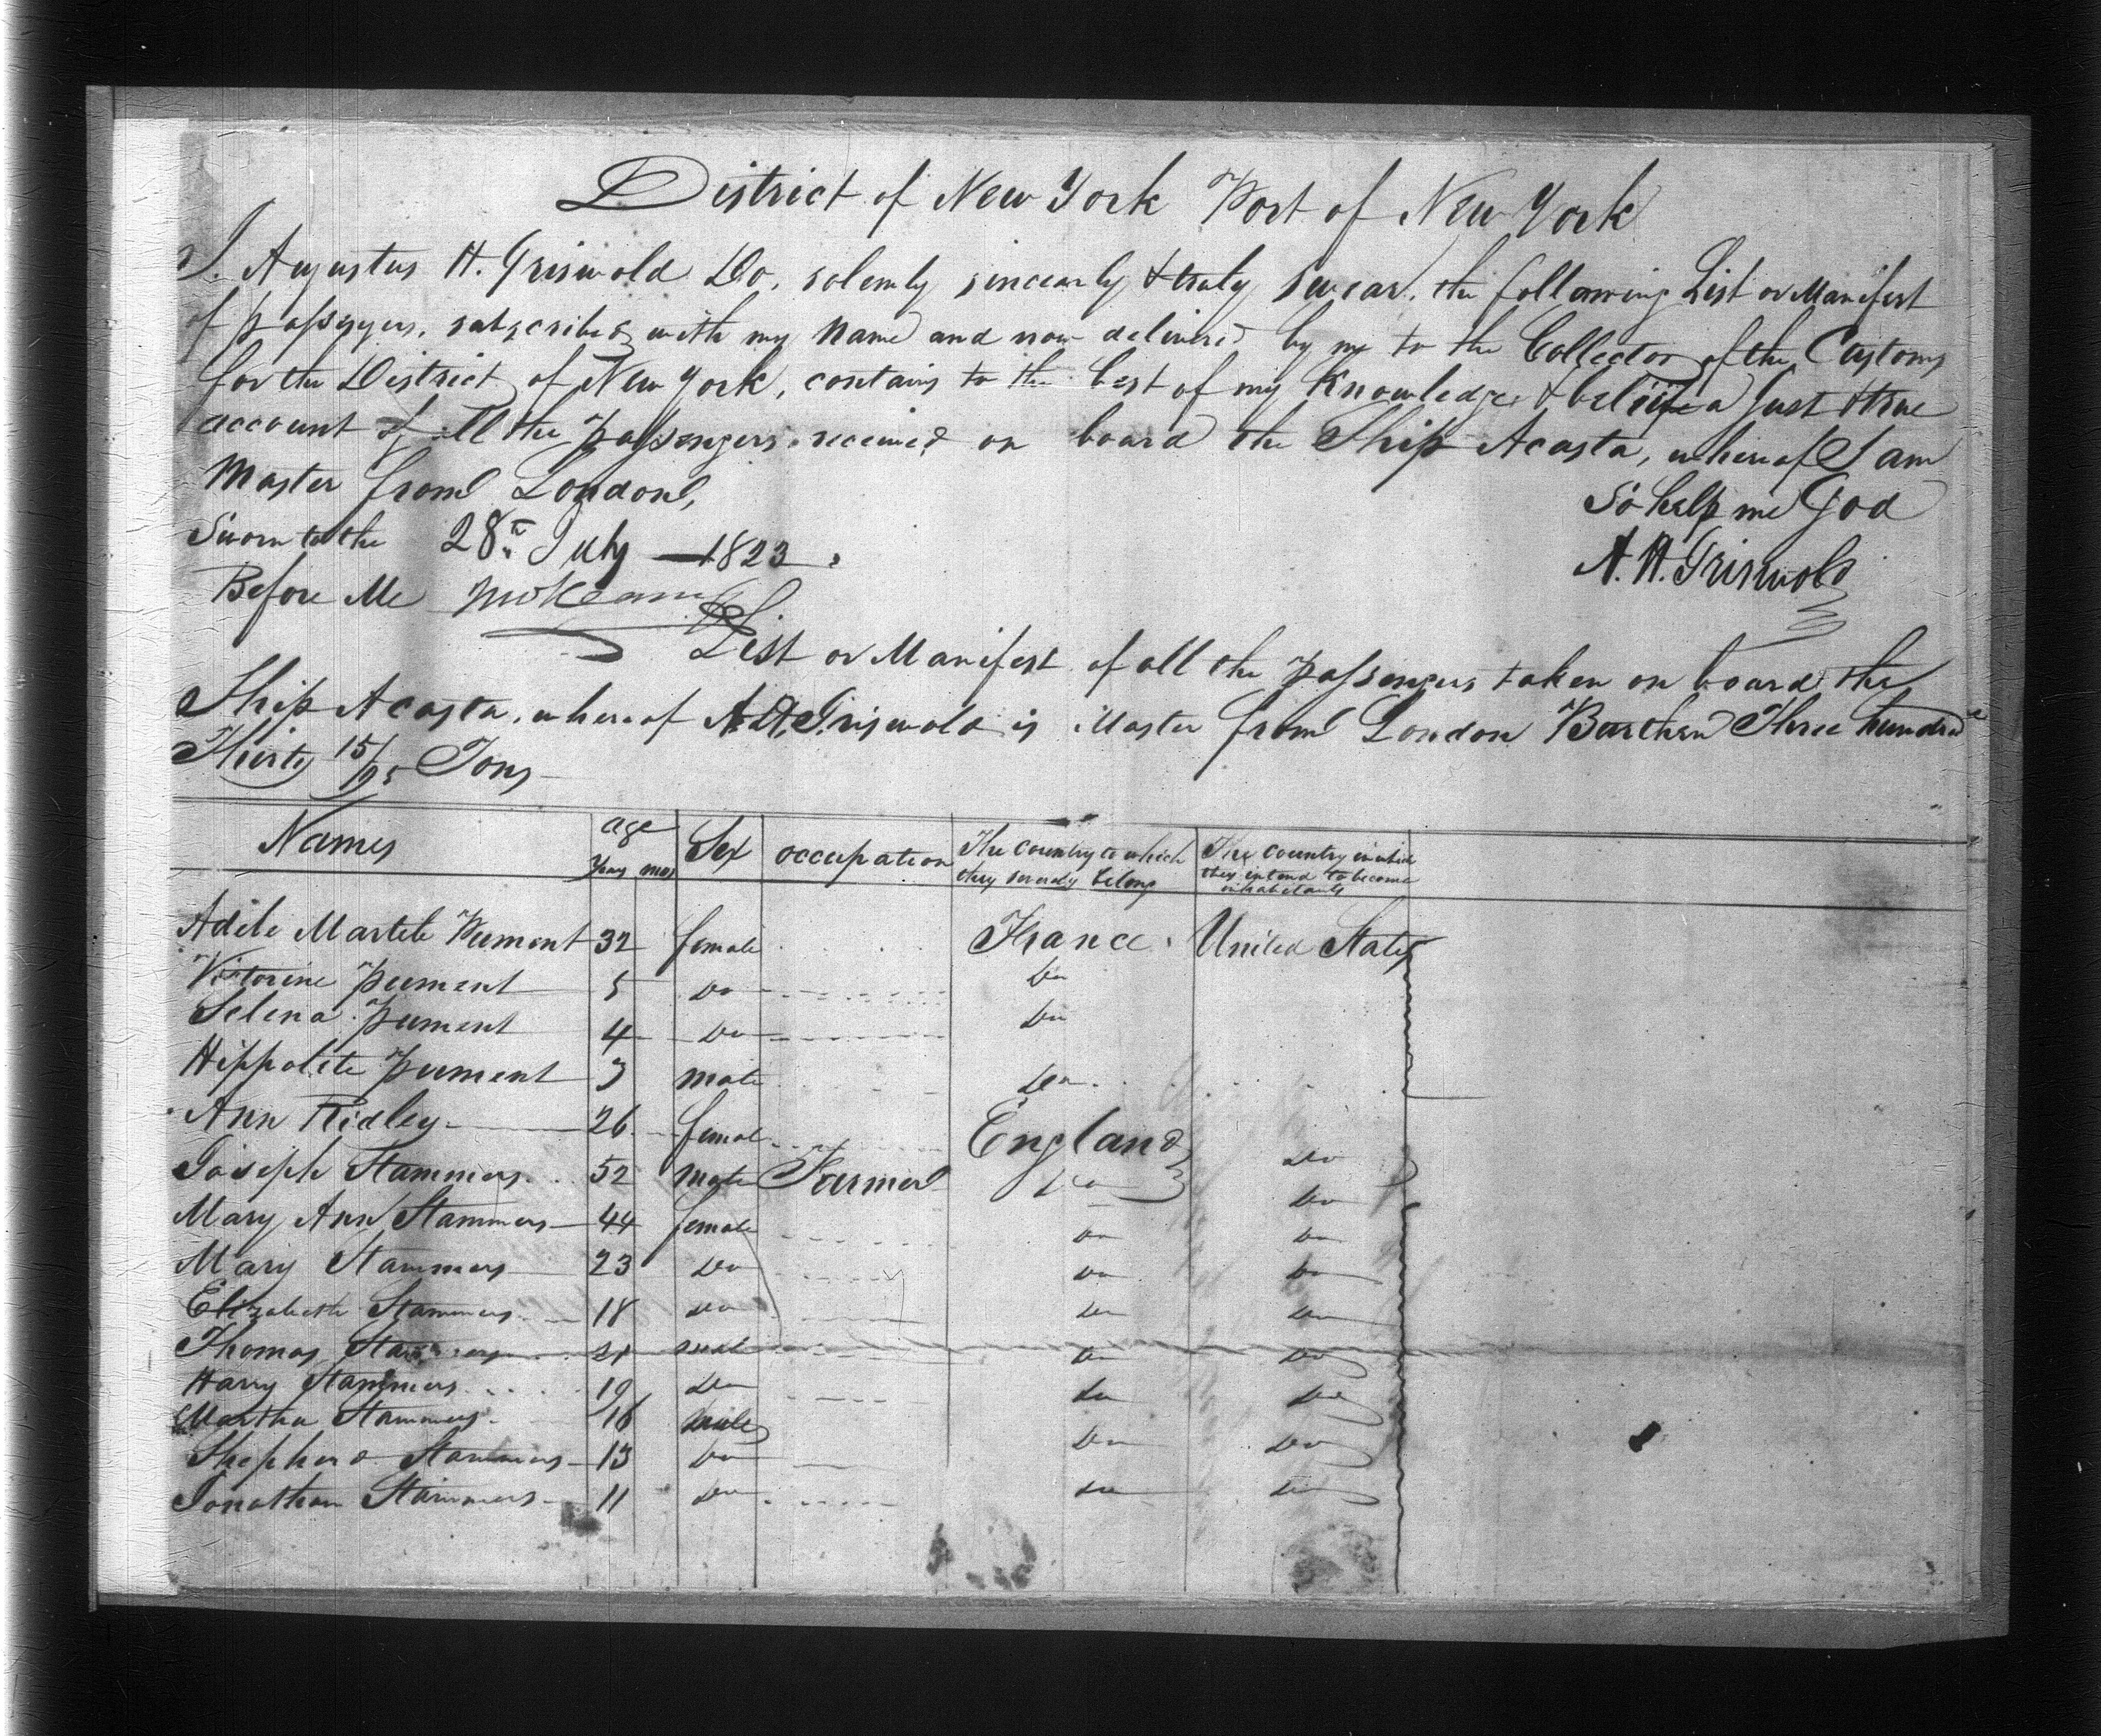 District of New York Port of New York
I. Augustus H. Griswold Do, solemly sincearly & truly swear, the following List or Manifest
of passengers, subscribed with my Name and now delivered by me to the Collector of the Customs
for the District of New York, contains to the best of my Knowledge & belief a Just & true
account of all the passengers received on board the Ship Acasta, whereof I am
Master from London,
So help me God
Sworn to the 28th July 1823.
A. H. Griswold
Before Me
List or Manifest of all the passengers taken on board the
Ship Acasta, whereof A. H. Griswold is Master from London Burthen Three hundred
Thirty 15/95 Tons
Names age Years mos Sex occupation The Country to which they severaly belong The Country in which they intend to become inhabitants
Adele Martele Pument 32 female France. United States
Victorine Pument 5 Do Do
Selena Pument 4 Do Do
Hippolite Pument 3 male Do
Ann Ridley 26 female England Do
Joseph Stammers 52 male Farmer Do Do
Mary Ann Stammers 44 female Do Do
Mary Stammers 23 Do Do Do
Elizabeth Stammers 18 Do Do Do
Thomas Stammers 21 male Do Do
Harry Stammers 19 Do Do Do
Martha Stammers 16 male Do Do
Shepherd Stammers 13 Do Do Do
Jonathan Stammers 11 Do